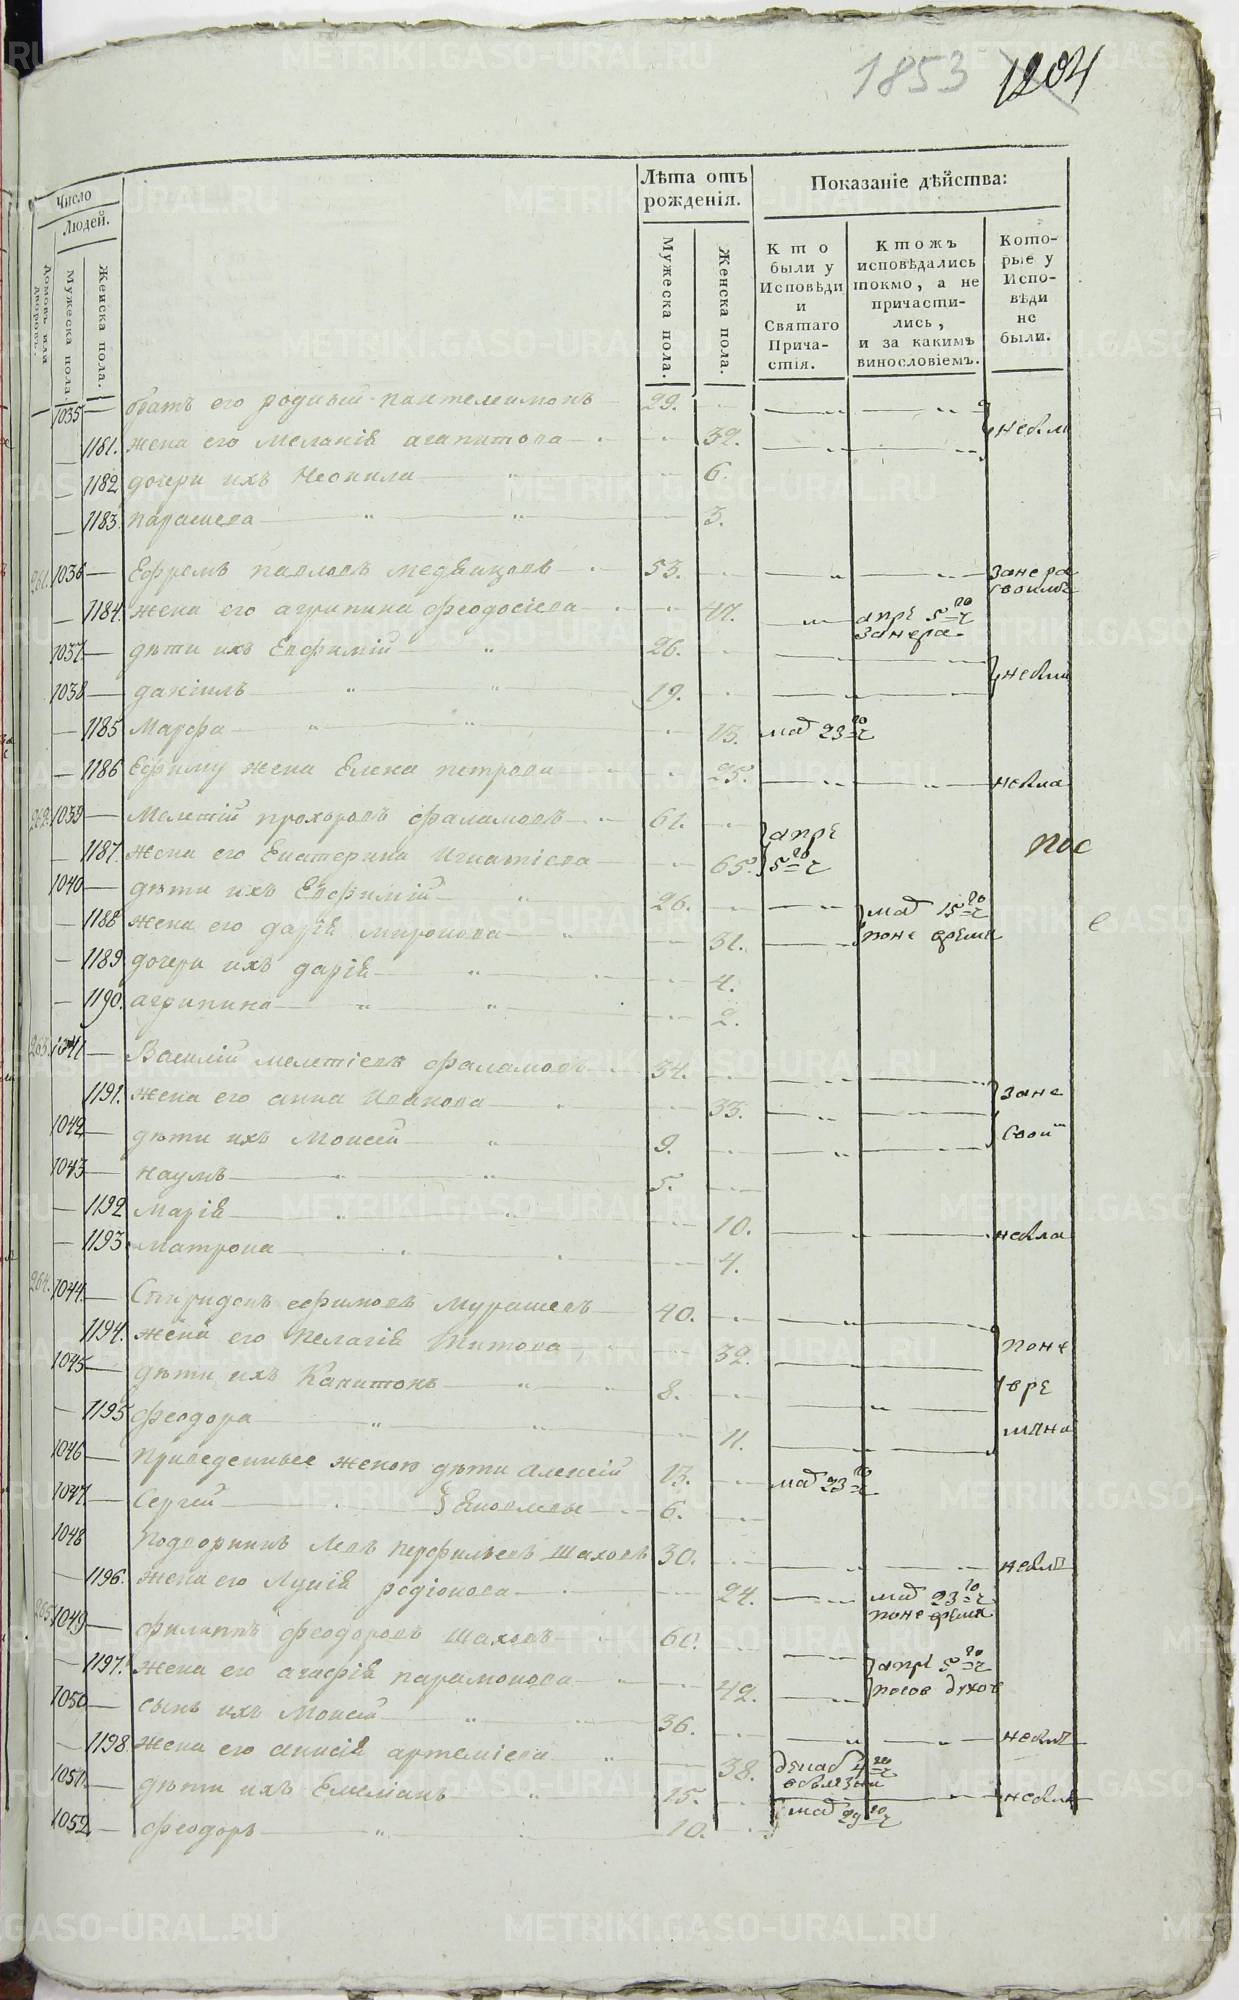 1853 1204
Число
Людей.
Домовъ или дворовъ.
Мужеска пола.
Женска пола.
Лѣта отъ рожденія.
Мужеска пола.
Женска пола.
Показаніе дѣйства:
Кто были у Исповѣди и Святаго Причастія.
Ктожъ исповѣдались токмо, а не причастились, и за какимъ винословіемъ.
Которые у Исповѣди не были.
1035 — братъ его родный Пантелеимонъ — 29.
— 1181. жена его Меланія Агапитова — 32. неявл
— 1182 дочери ихъ Неонила — 6.
— 1183. Парасκева — 3.
261. 1036 — Ефремъ Павловъ Медвѣдцовъ — 53. Занера
— 1184. жена его Агрипина Феодосіева — 47. апрѣ 5го ч Занера
1037 — дѣти ихъ Евфимій — 26. неявл
1038 — Даніилъ — 19.
— 1185 Марфа — 13. маѧ 23го ч
— 1186 Ефиму жена Елена Петрова — 25. неявла
262. 1039 — Мелетій Прохоровъ Фаламовъ — 61. апрѣ
— 1187. жена его Екатерина Игнатіева — 65. 5го ч
1040 — дѣти ихъ Евфимій — 26. маѧ 15го ч
— 1188 жена его Дарія Миронова — 31. поне время
— 1189 дочери ихъ Дарія — 4.
— 1190. Агрипина — 2.
263. 1041 — Василій Мелетіевъ Фаламовъ — 34.
— 1191. жена его Анна Иванова — 33. Зане
1042 — дѣти ихъ Моисей — 9. свои
1043 — Наумъ — 5.
— 1192 Марія — 10. неявла
— 1193 Матрона — 4.
264. 1044. — Спиридонъ Ефимовъ Мурашевъ — 40.
1194. жена его Пелагія Титова — 32. поне
1045 — дѣти ихъ Капитонъ — 8. врѣ
— 1195 Феодора — 11. мяна
1046 — Приведенные женою дѣти Алексій 13. маѧ 23го ч
1047 — Сергей — } Яковлевы — 6.
1048 Подворникъ Левъ Перфильевъ Шаховъ 30. неявл
— 1196. жена его Лукія Родіонова — 24. маѧ 23го ч поне время
265. 1049 — Филиппъ Феодоровъ Шаховъ — 60. апрѣ 5го ч
— 1197. жена его Агафія Парамонова — 42. посов духов
1050 — сынъ ихъ Моисей — 36. неявл
— 1198. жена его Анисія Артеміева — 38. декаб 4го ч
1051. — дѣти ихъ Емеліанъ — 15. неявл
1052. — Феодоръ — 10. маѧ 29го ч
METRIKI.GASO-URAL.RU